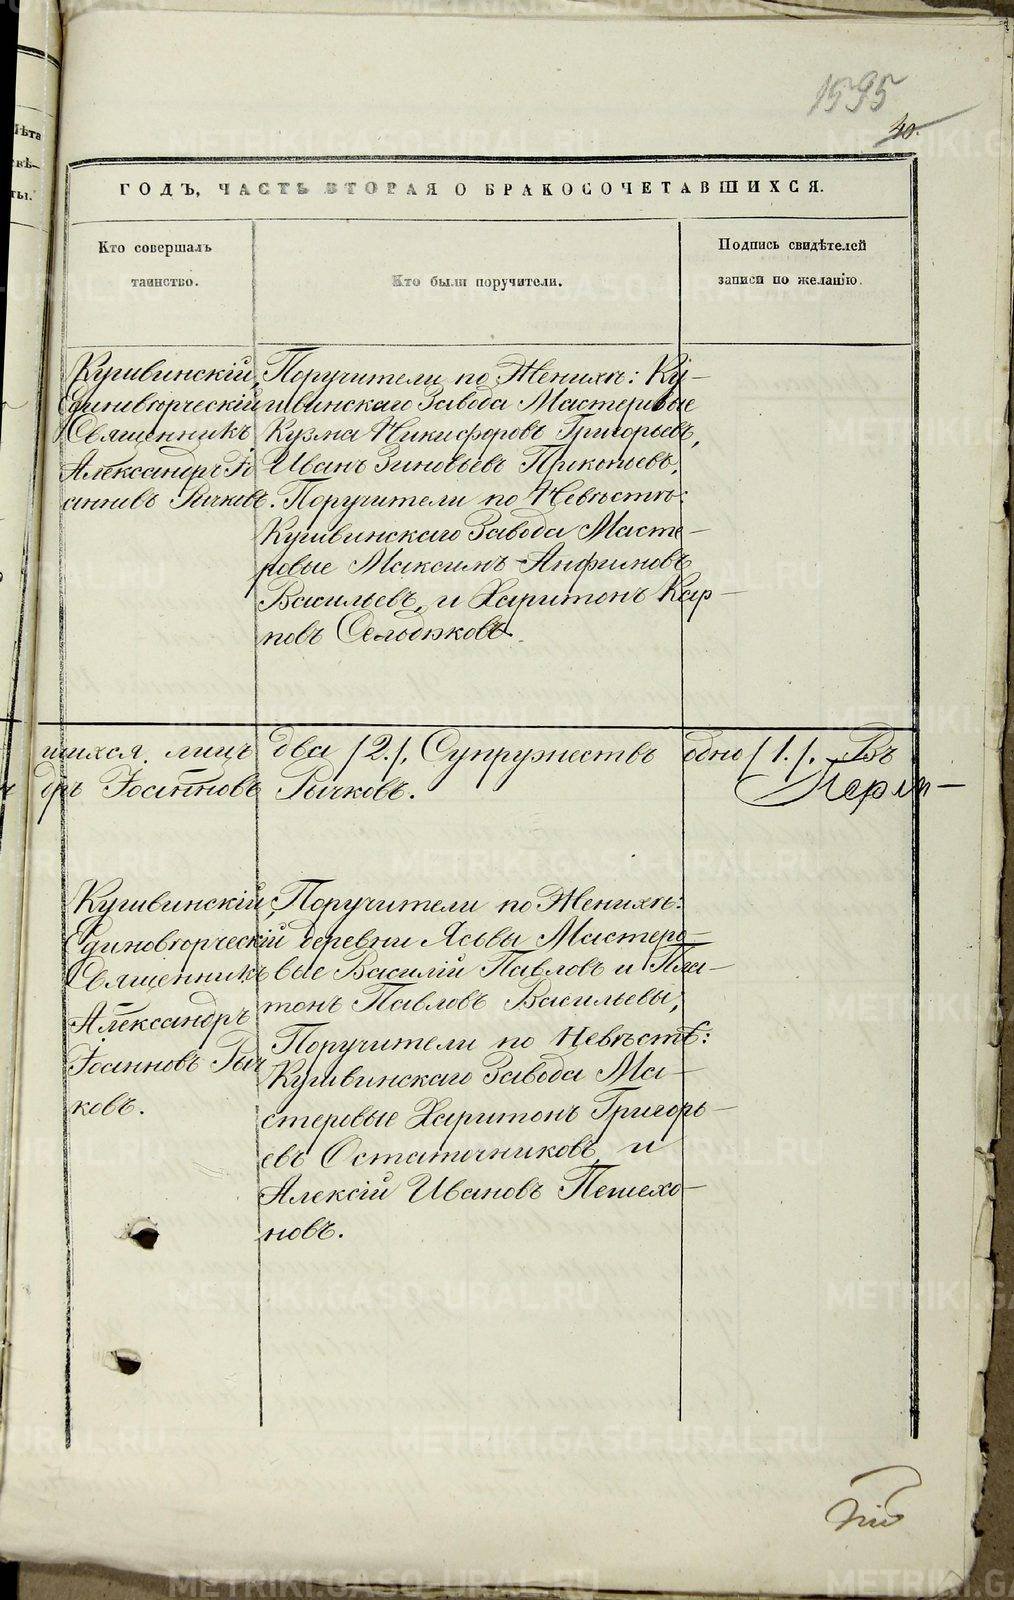 1595
40.
ГОДЪ, ЧАСТЬ ВТОРАЯ О БРАКОСОЧЕТАВШИХСЯ.
Кто совершалъ
таинство.
Кто были поручители.
Подпись свидѣтелей
записи по желанію.
Кушвинскій
Единовѣрческій
Священникъ
Александръ Іо
анновъ Рычковъ.
Поручители по Женихѣ: Ку-
швинскаго Завода Мастеровые
Кузма Никифоровъ Григорьевъ,
Иванъ Зиновьевъ Прокопьевъ,
Поручители по Невѣстѣ:
Кушвинскаго Завода Масте-
ровые Максимъ Анфимовъ
Васильевъ, и Харитонъ Кар-
повъ Селодковъ.
шихся лицъ два /2./. Супружествъ одно /1./. Въ
дръ Іоанновъ Рычковъ.
Перм-
Кушвинскій
Единовѣрческій
Священникъ
Александръ
Іоанновъ Рыч
ковъ.
Поручители по Женихѣ:
деревни Ясьвы Мастеро-
вые Василій Павловъ и Пла-
тонъ Павловъ Васильевы,
Поручители по Невѣстѣ:
Кушвинскаго Завода Ма-
стеровые Харитонъ Григорь-
евъ Остаточниковъ и
Алексій Ивановъ Пешехо-
новъ.
METRIKI.GASO-URAL.RU